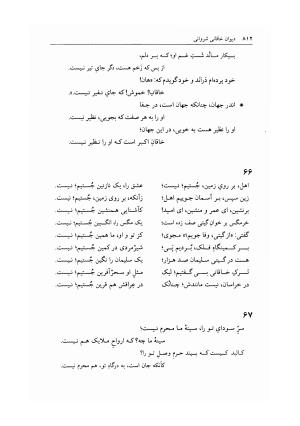 ۸۱۲ دیوان خاقانی شروانی
پیکار مالد شست غم او؛ که بر دلم،
از بس که زخم هست، دگر جای تیر نیست.
خود پرده‌ام دراند و خود گویدم که: «هان!
خاقانیا! خموش! که جای نفیر نیست.»
* اندر جهان، چنانکه جهان است، در جفا
او را به هر صفت که بجویی، نظیر نیست.
او را نظیر هست به خوبی، در این جهان؛
خاقان اکبر است که او را نظیر نیست.
۶۶
اهل، بر روی زمین، جُستیم؛ نیست. عشق را، یک نازنین جُستیم؛ نیست.
زین سپس، بر آسمان جوییم اهل؛ زآنکه، بر روی زمین، جُستیم؛ نیست.
برنشین، ای عمر و منشین، ای امید! کآشنایی همنشین جُستیم؛ نیست.
خرمگس بر خوان گیتی صف زده است؛ یک مگس را، انگبین جُستیم؛ نیست.
گفتی: «از گیتی، وفا جویم.» مجوی؛ کز تو و او، ما همین جُستیم؛ نیست.
بر کمینگاه فلک، بُردیم پَی؛ شیرمردی در کمین جُستیم؛ نیست.
هست در گیتی سلیمان صد هزار؛ یک سلیمان را نگین جُستیم؛ نیست.
ترک خاقانی بسی گفتیم؛ لیک مثل او سحرآفرین جُستیم؛ نیست.
در خراسان، نیست مانندش؛ چنانک در عراقش هم قرین جُستیم؛ نیست.
۶۷
سرّ سودای تو را، سینۀ ما محرم نیست؛
سینۀ ما چه؟ که ارواح ملایک هم نیست.
کالبد کیست که بیند حرم وصل تو را؟
کآنکه جان است، به درگاه تو، هم محرم نیست.